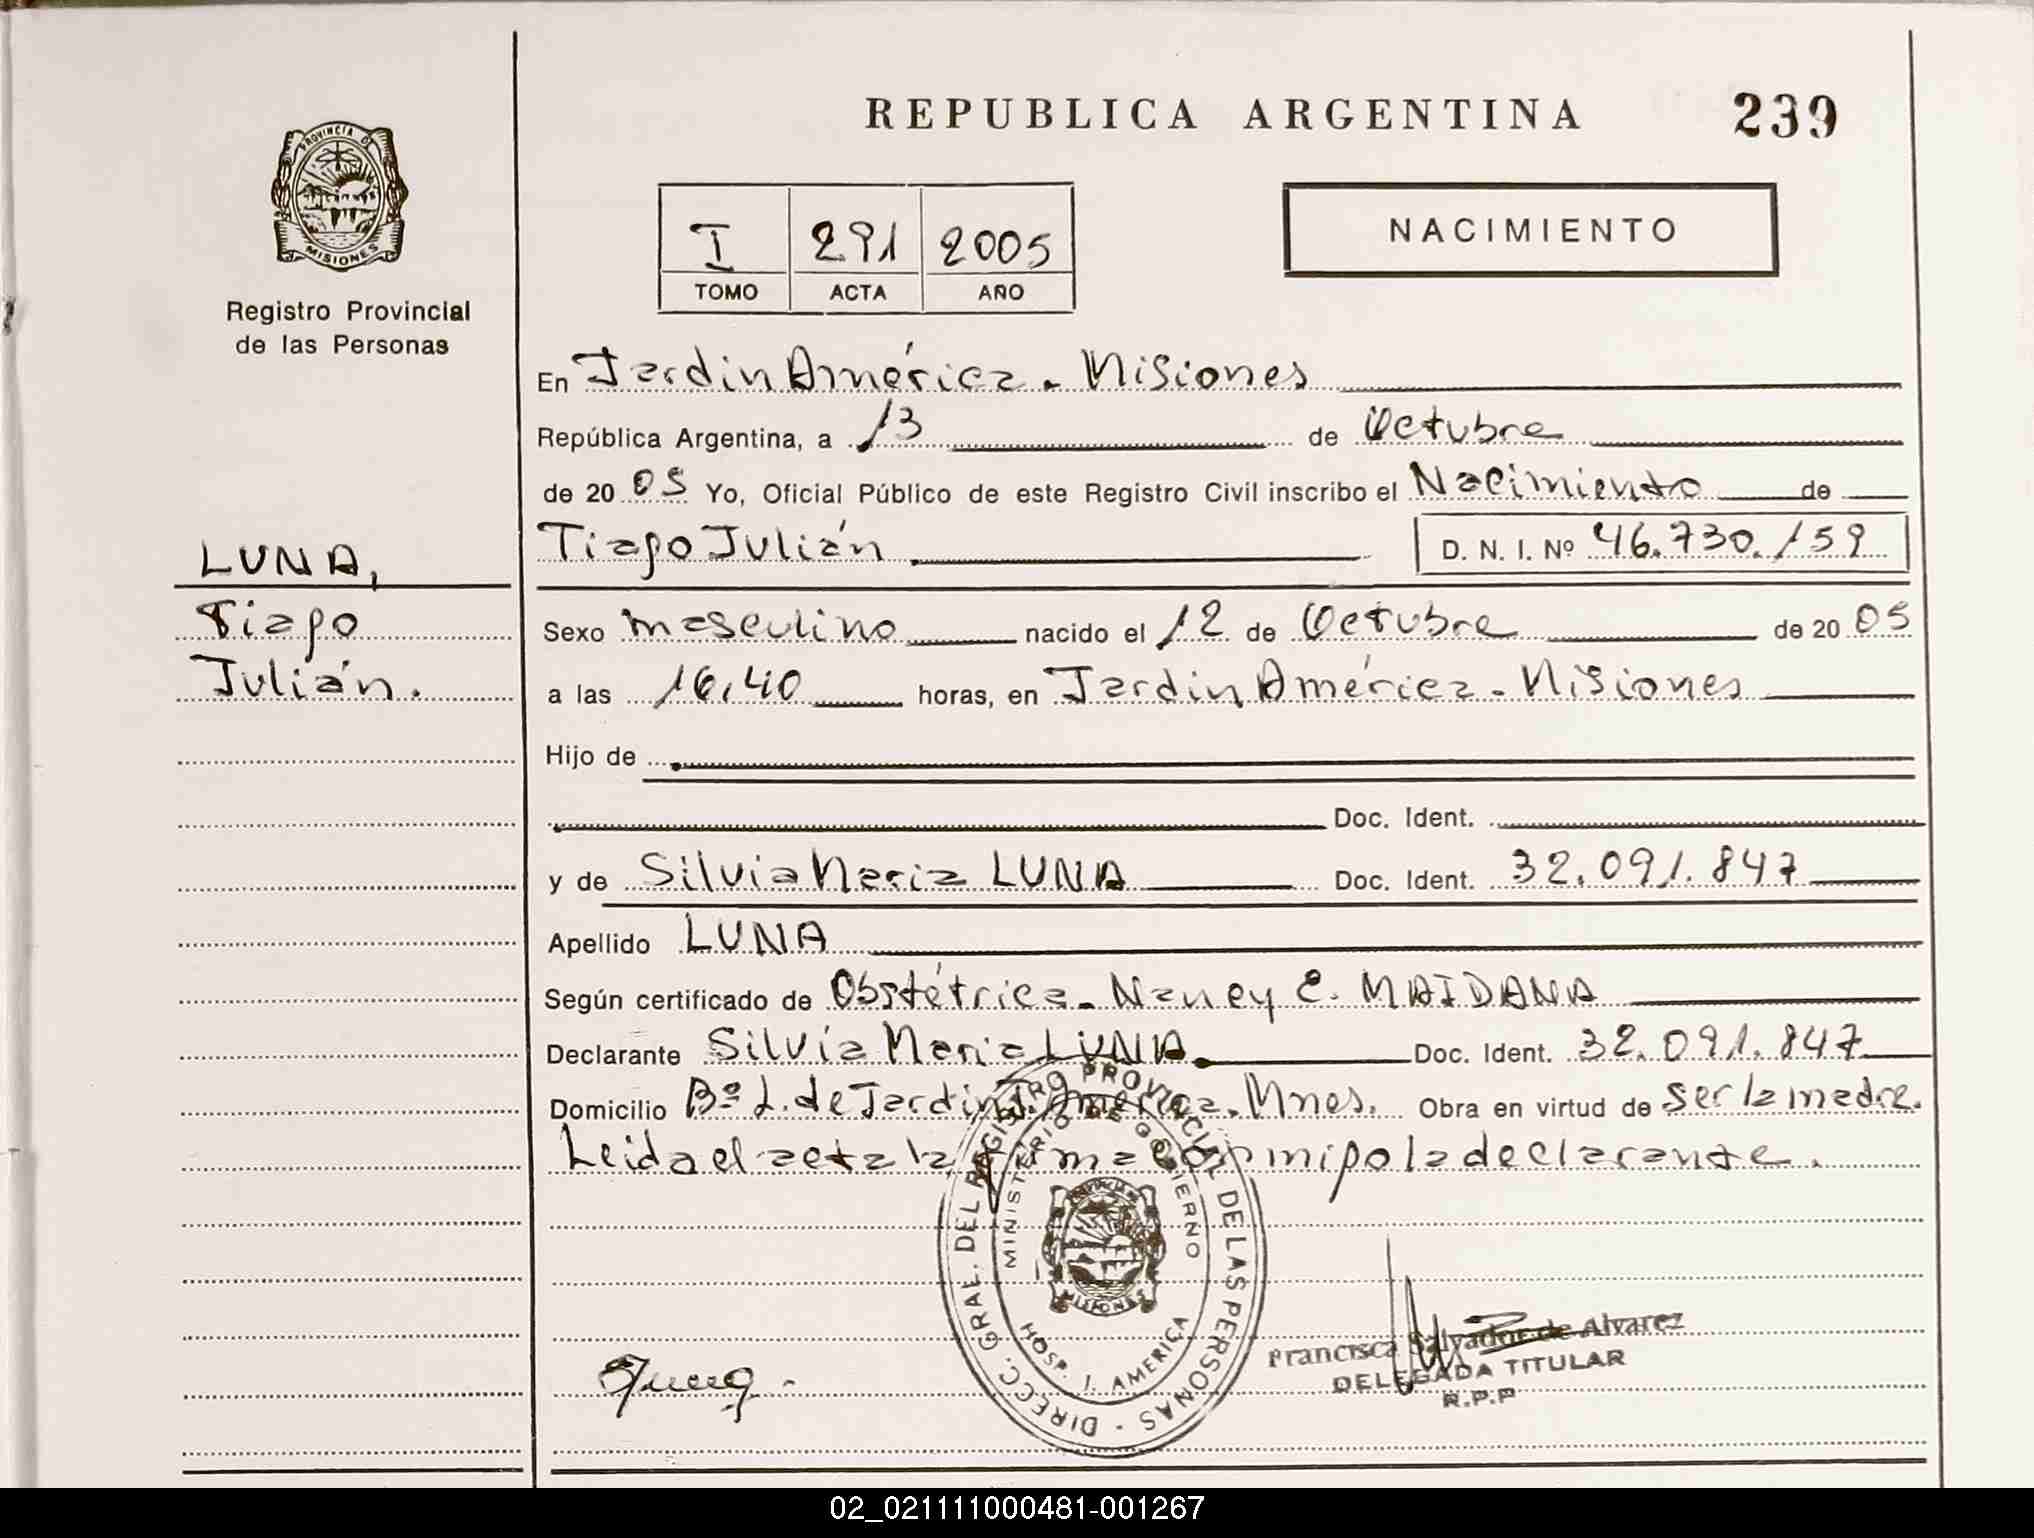 PROVINCIA DE
MISIONES
Registro Provincial
de las Personas
LUNA,
Tiago
Julián.
REPUBLICA ARGENTINA 239
I 291 2005
TOMO ACTA AÑO
NACIMIENTO
En Jardin América - Misiones
República Argentina, a 13 de Octubre
de 20 05 Yo, Oficial Público de este Registro Civil inscribo el Nacimiento de
Tiago Julián D. N. I. Nº 46.730.159
Sexo masculino nacido el 12 de Octubre de 20 05
a las 16,40 horas, en Jardin América - Misiones
Hijo de
Doc. Ident.
y de Silvia Maria LUNA Doc. Ident. 32.091.847
Apellido LUNA
Según certificado de Obstétrica - Nancy E. MAIDANA
Declarante Silvia Maria LUNA. Doc. Ident. 32.091.847
Domicilio Bº L. de Jardin América. Mnes. Obra en virtud de ser la madre.
Leida el acta la firma con migo la declarante.
DIRECC. GRAL. DEL REGISTRO PROVINCIAL DE LAS PERSONAS -
MINISTERIO DE GOBIERNO
MISIONES
HOSP. J. AMERICA
Francisca Salvador de Alvarez
DELEGADA TITULAR
R.P.P
02_021111000481-001267